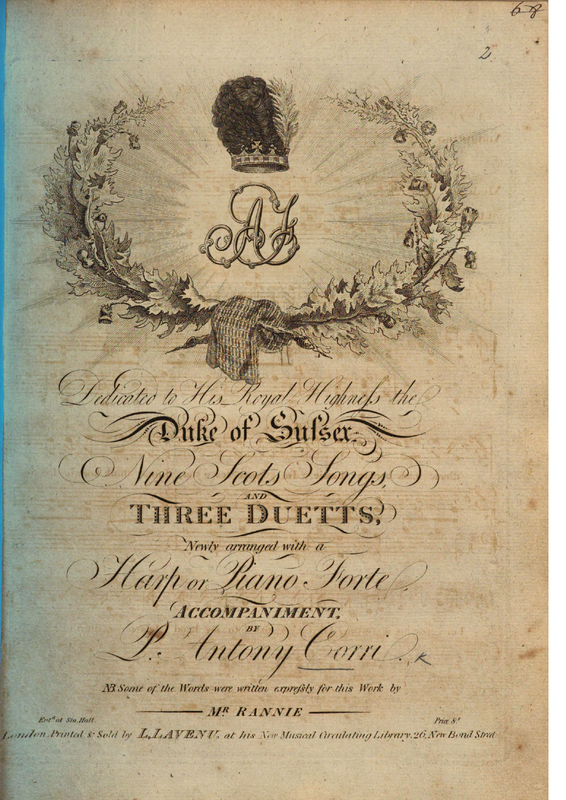 68
2
AF
Dedicated to His Royal Highneſs the
Duke of Suſsex.
Nine Scots Songs,
AND
THREE DUETTS,
Newly arranged with a
Harp or Piano Forte
ACCOMPANIMENT,
BY
P. Antony Corri.
NB. Some of the Words were written expreſsly for this Work by
MR RANNIE
Entd. at Sta. Hall. Price 8s.
London, Printed & Sold by L. LAVENU, at his New Musical Circulating Library, 26, New Bond Street